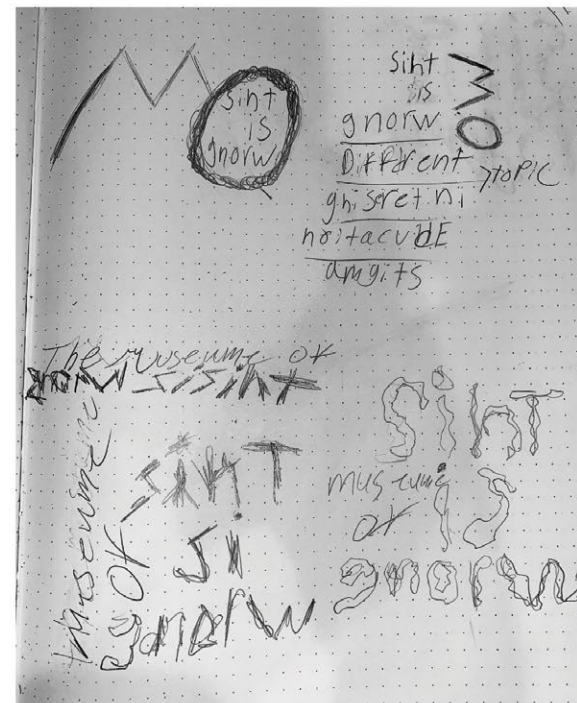 MO
siht
is
gnorw
siht
is
gnorw
MO
Diffdrent
>topic
ghiseret ni
noitacubE
amgits
The museume of
gnorw si siht
museume of
siht
si
gnorw
museume
of
siht
is
gnorw